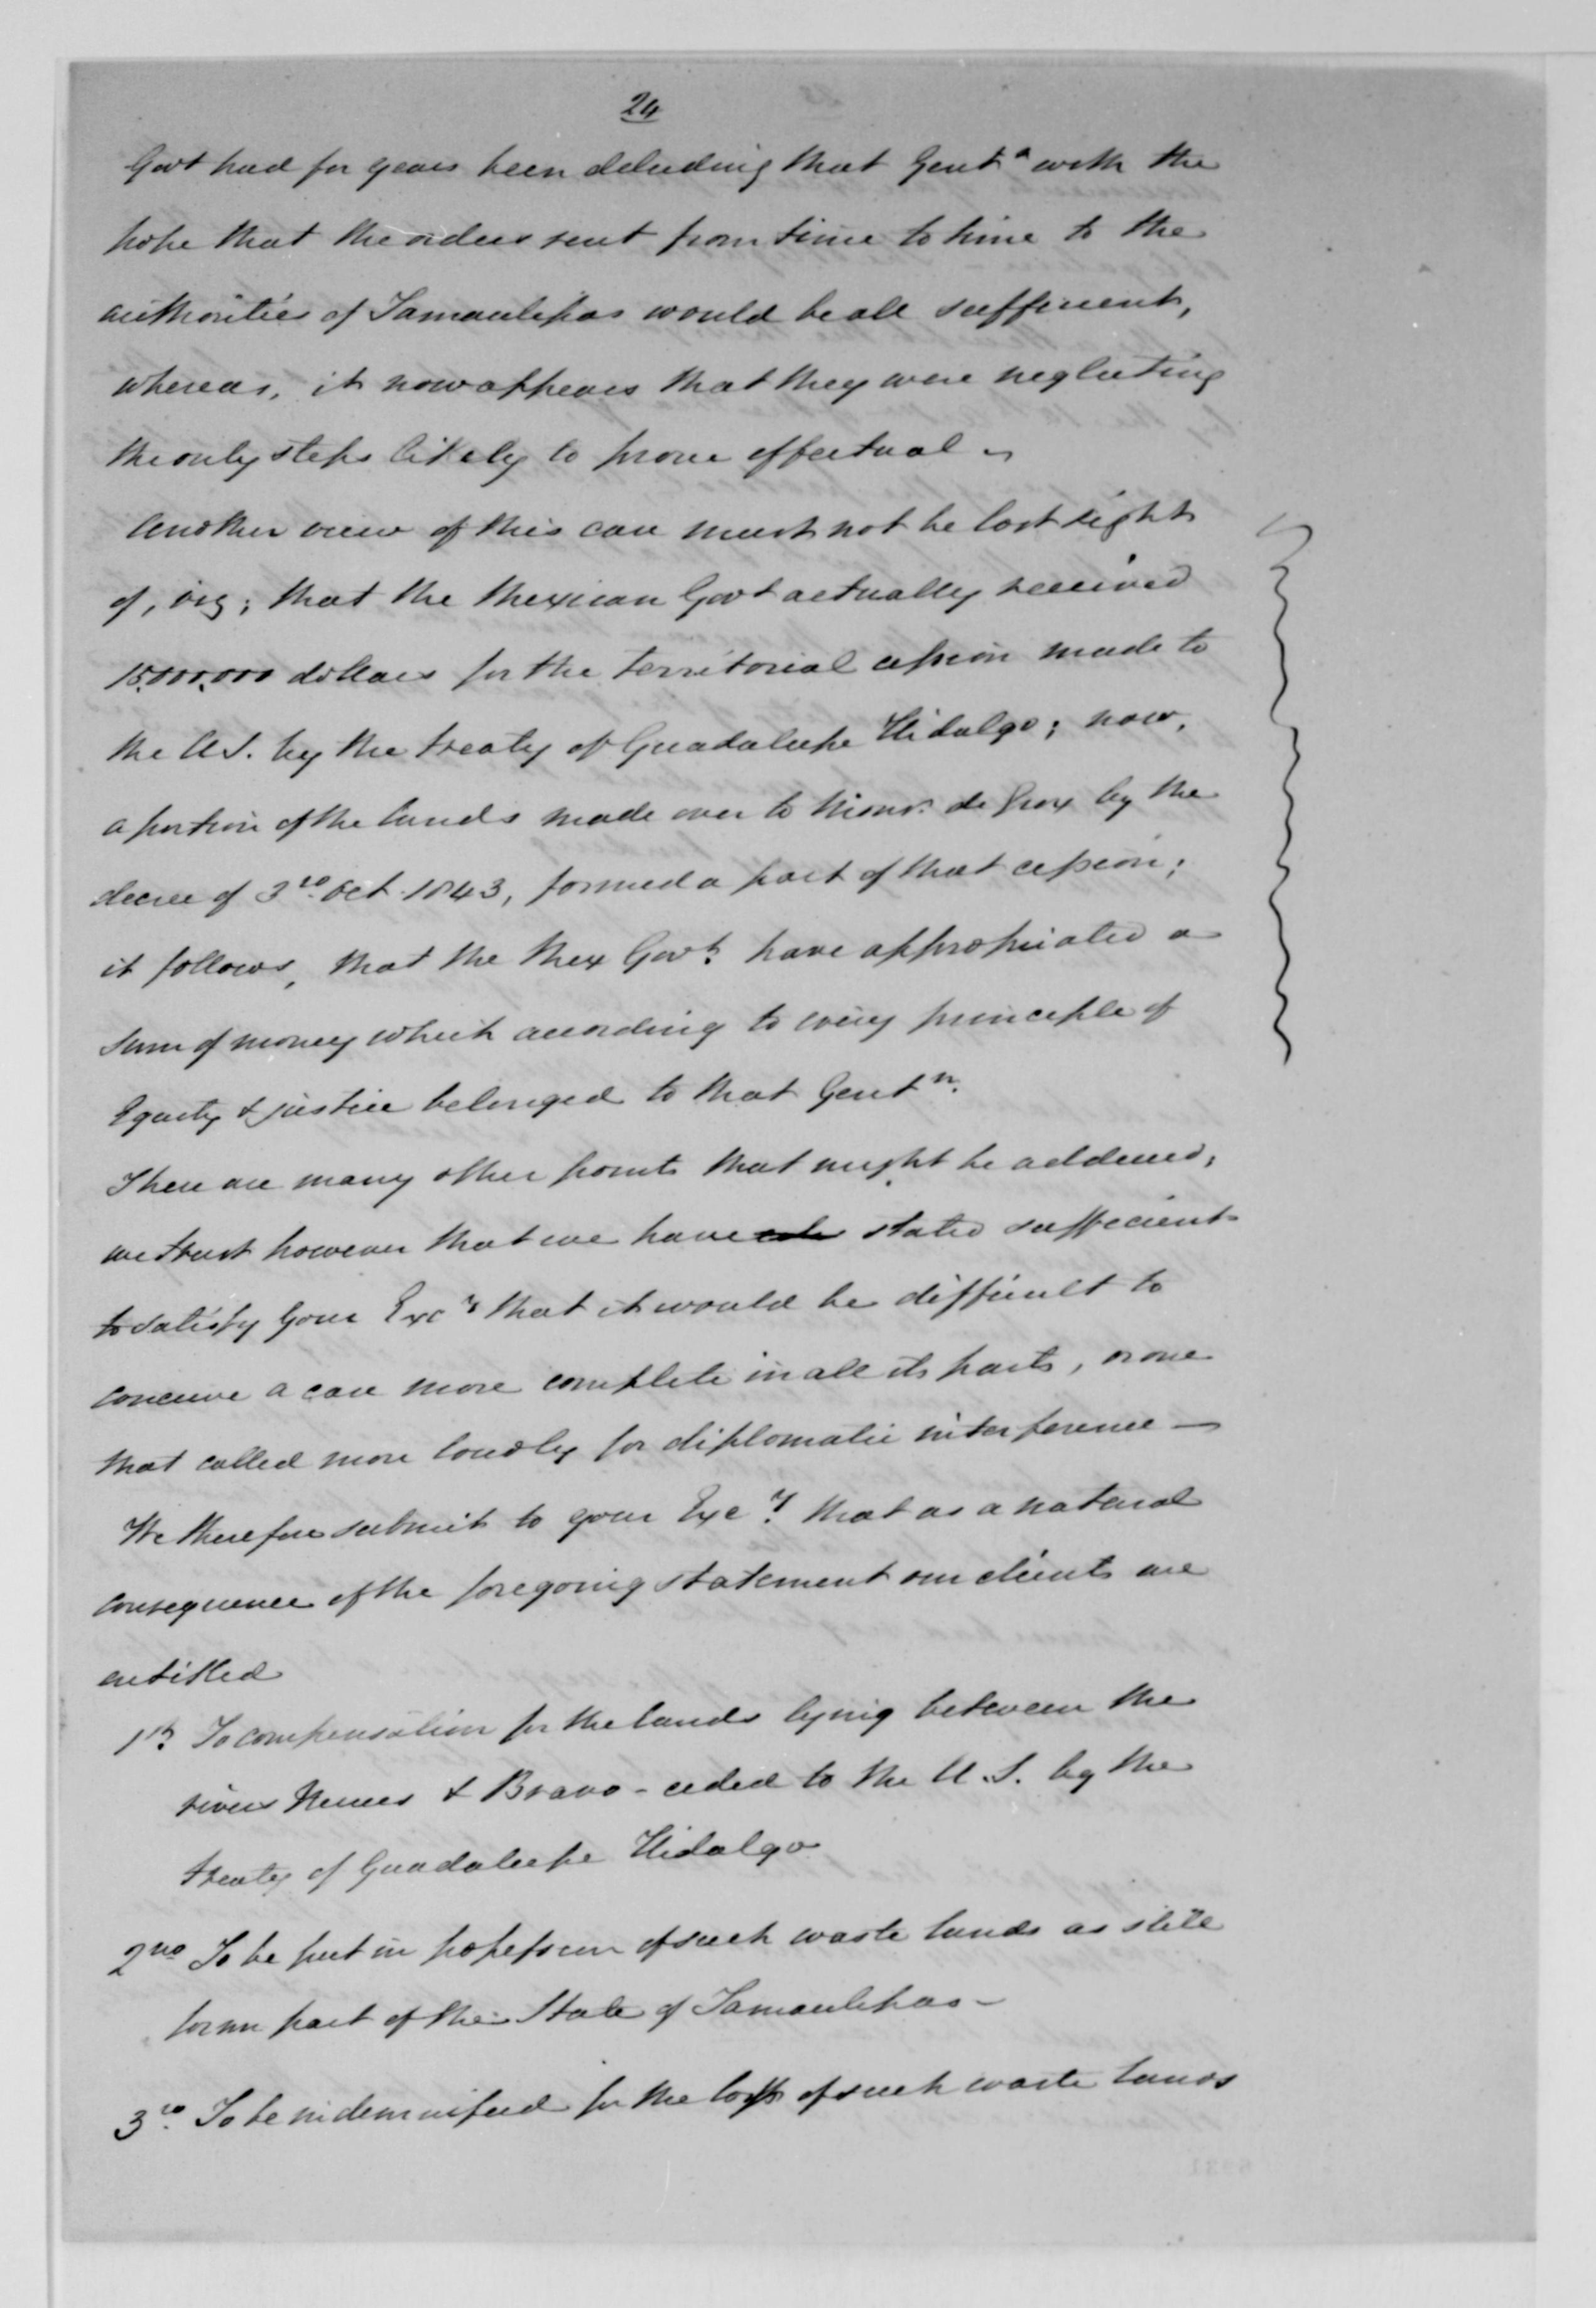 24
Govt had for years been deluding that Gentn with the
hope that the orders sent from time to time to the
authorities of Tamaulipas would be all sufficient,
whereas, it now appears that they were neglecting
the only steps likely to prove effectual –
Another view of this case must not be lost sight
of, viz; that the Mexican Govt actually received
15,000,000 dollars for the territorial cession made to
the U.S. by the treaty of Guadalupe Hidalgo; now,
a portion of the lands made over to Monsr. de by the
decree of 3rd. Oct. 1843, formed a part of that cession;
it follows, that the Mex Govt. have appropriated a
sum of money which according to every principle of
Equity & justice belonged to that Gentn.
There are many other points that might be adduced,
we trust however that we have stated sufficient
to satisfy your Excy that it would be difficult to
conceive a case more complete in all its parts, or one
that called more loudly for diplomatic interference —
We therefore submit to your Excy. that as a natural
consequence of the foregoing statement our clients are
entitled
1st. To compensation for the lands lying between the
rivers Nueces & Bravo - ceded to the U.S. by the
treaty of Guadalupe Hidalgo
2nd To be put in possession of such waste lands as still
form part of the State of Tamaulipas –
3rd. To be indemnified for the loss of such waste lands